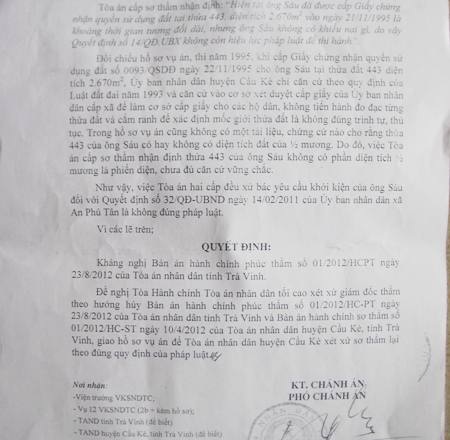 Tòa án cấp sơ thẩm nhận định: "Hiện tại ông Sáu đã được cấp Giấy chứng
nhận quyền sử dụng đất tại thửa 443, diện tích 2.670m² vào ngày 21/11/1995 là
khoảng thời gian tương đối dài, nhưng ông Sáu không có khiếu nại gì, do vậy
Quyết định số 14/QĐ.UBX không còn hiệu lực pháp luật để thi hành".
Đối chiếu hồ sơ vụ án, thì năm 1995, khi cấp Giấy chứng nhận quyền sử
dụng đất số 0093/QSDĐ ngày 22/11/1995 cho ông Sáu tại thửa đất 443 diện
tích 2.670m², Ủy ban nhân dân huyện Cầu Kè chỉ căn cứ theo quy định của
Luật đất đai năm 1993 và căn cứ vào cơ sở xét duyệt cấp giấy của Ủy ban nhân
dân cấp xã để làm cơ sở cấp giấy cho các hộ dân, không tiến hành đo đạc từng
thửa đất và cắm ranh để xác định mốc giới thửa đất là không đúng trình tự, thủ
tục. Trong hồ sơ vụ án cũng không có một tài liệu, chứng cứ nào cho rằng thửa
443 của ông Sáu có hay không có diện tích đất của ½ mương. Do đó, việc Tòa
án cấp sơ thẩm nhận định thửa 443 của ông Sáu không có phần diện tích ½
mương là phiến diện, chưa đủ căn cứ vững chắc.
Như vậy, việc Tòa án hai cấp đều xử bác yêu cầu khởi kiện của ông Sáu
đối với Quyết định số 32/QĐ-UBND ngày 14/02/2011 của Ủy ban nhân dân xã
An Phú Tân là không đúng pháp luật.
Vì các lẽ trên;
QUYẾT ĐỊNH:
Kháng nghị Bản án hành chính phúc thẩm số 01/2012/HCPT ngày
23/8/2012 của Tòa án nhân dân tỉnh Trà Vinh.
Đề nghị Tòa Hành chính Tòa án nhân dân tối cao xét xử giám đốc thẩm
theo hướng hủy Bản án hành chính phúc thẩm số 01/2012/HC-PT ngày
23/8/2012 của Tòa án nhân dân tỉnh Trà Vinh và Bản án hành chính sơ thẩm số
01/2012/HC-ST ngày 10/4/2012 của Tòa án nhân dân huyện Cầu Kè, tỉnh Trà
Vinh, giao hồ sơ vụ án để Tòa án nhân dân huyện Cầu Kè xét xử sơ thẩm lại
theo đúng quy định của pháp luật.
Nơi nhận:
-Viện trưởng VKSNDTC;
- Vụ 12 VKSNDTC (2b + kèm hồ sơ);
- TAND tỉnh Trà Vinh (để biết)
- TAND huyện Cầu Kè, tỉnh Trà Vinh (để biết)
KT. CHÁNH ÁN
PHÓ CHÁNH ÁN